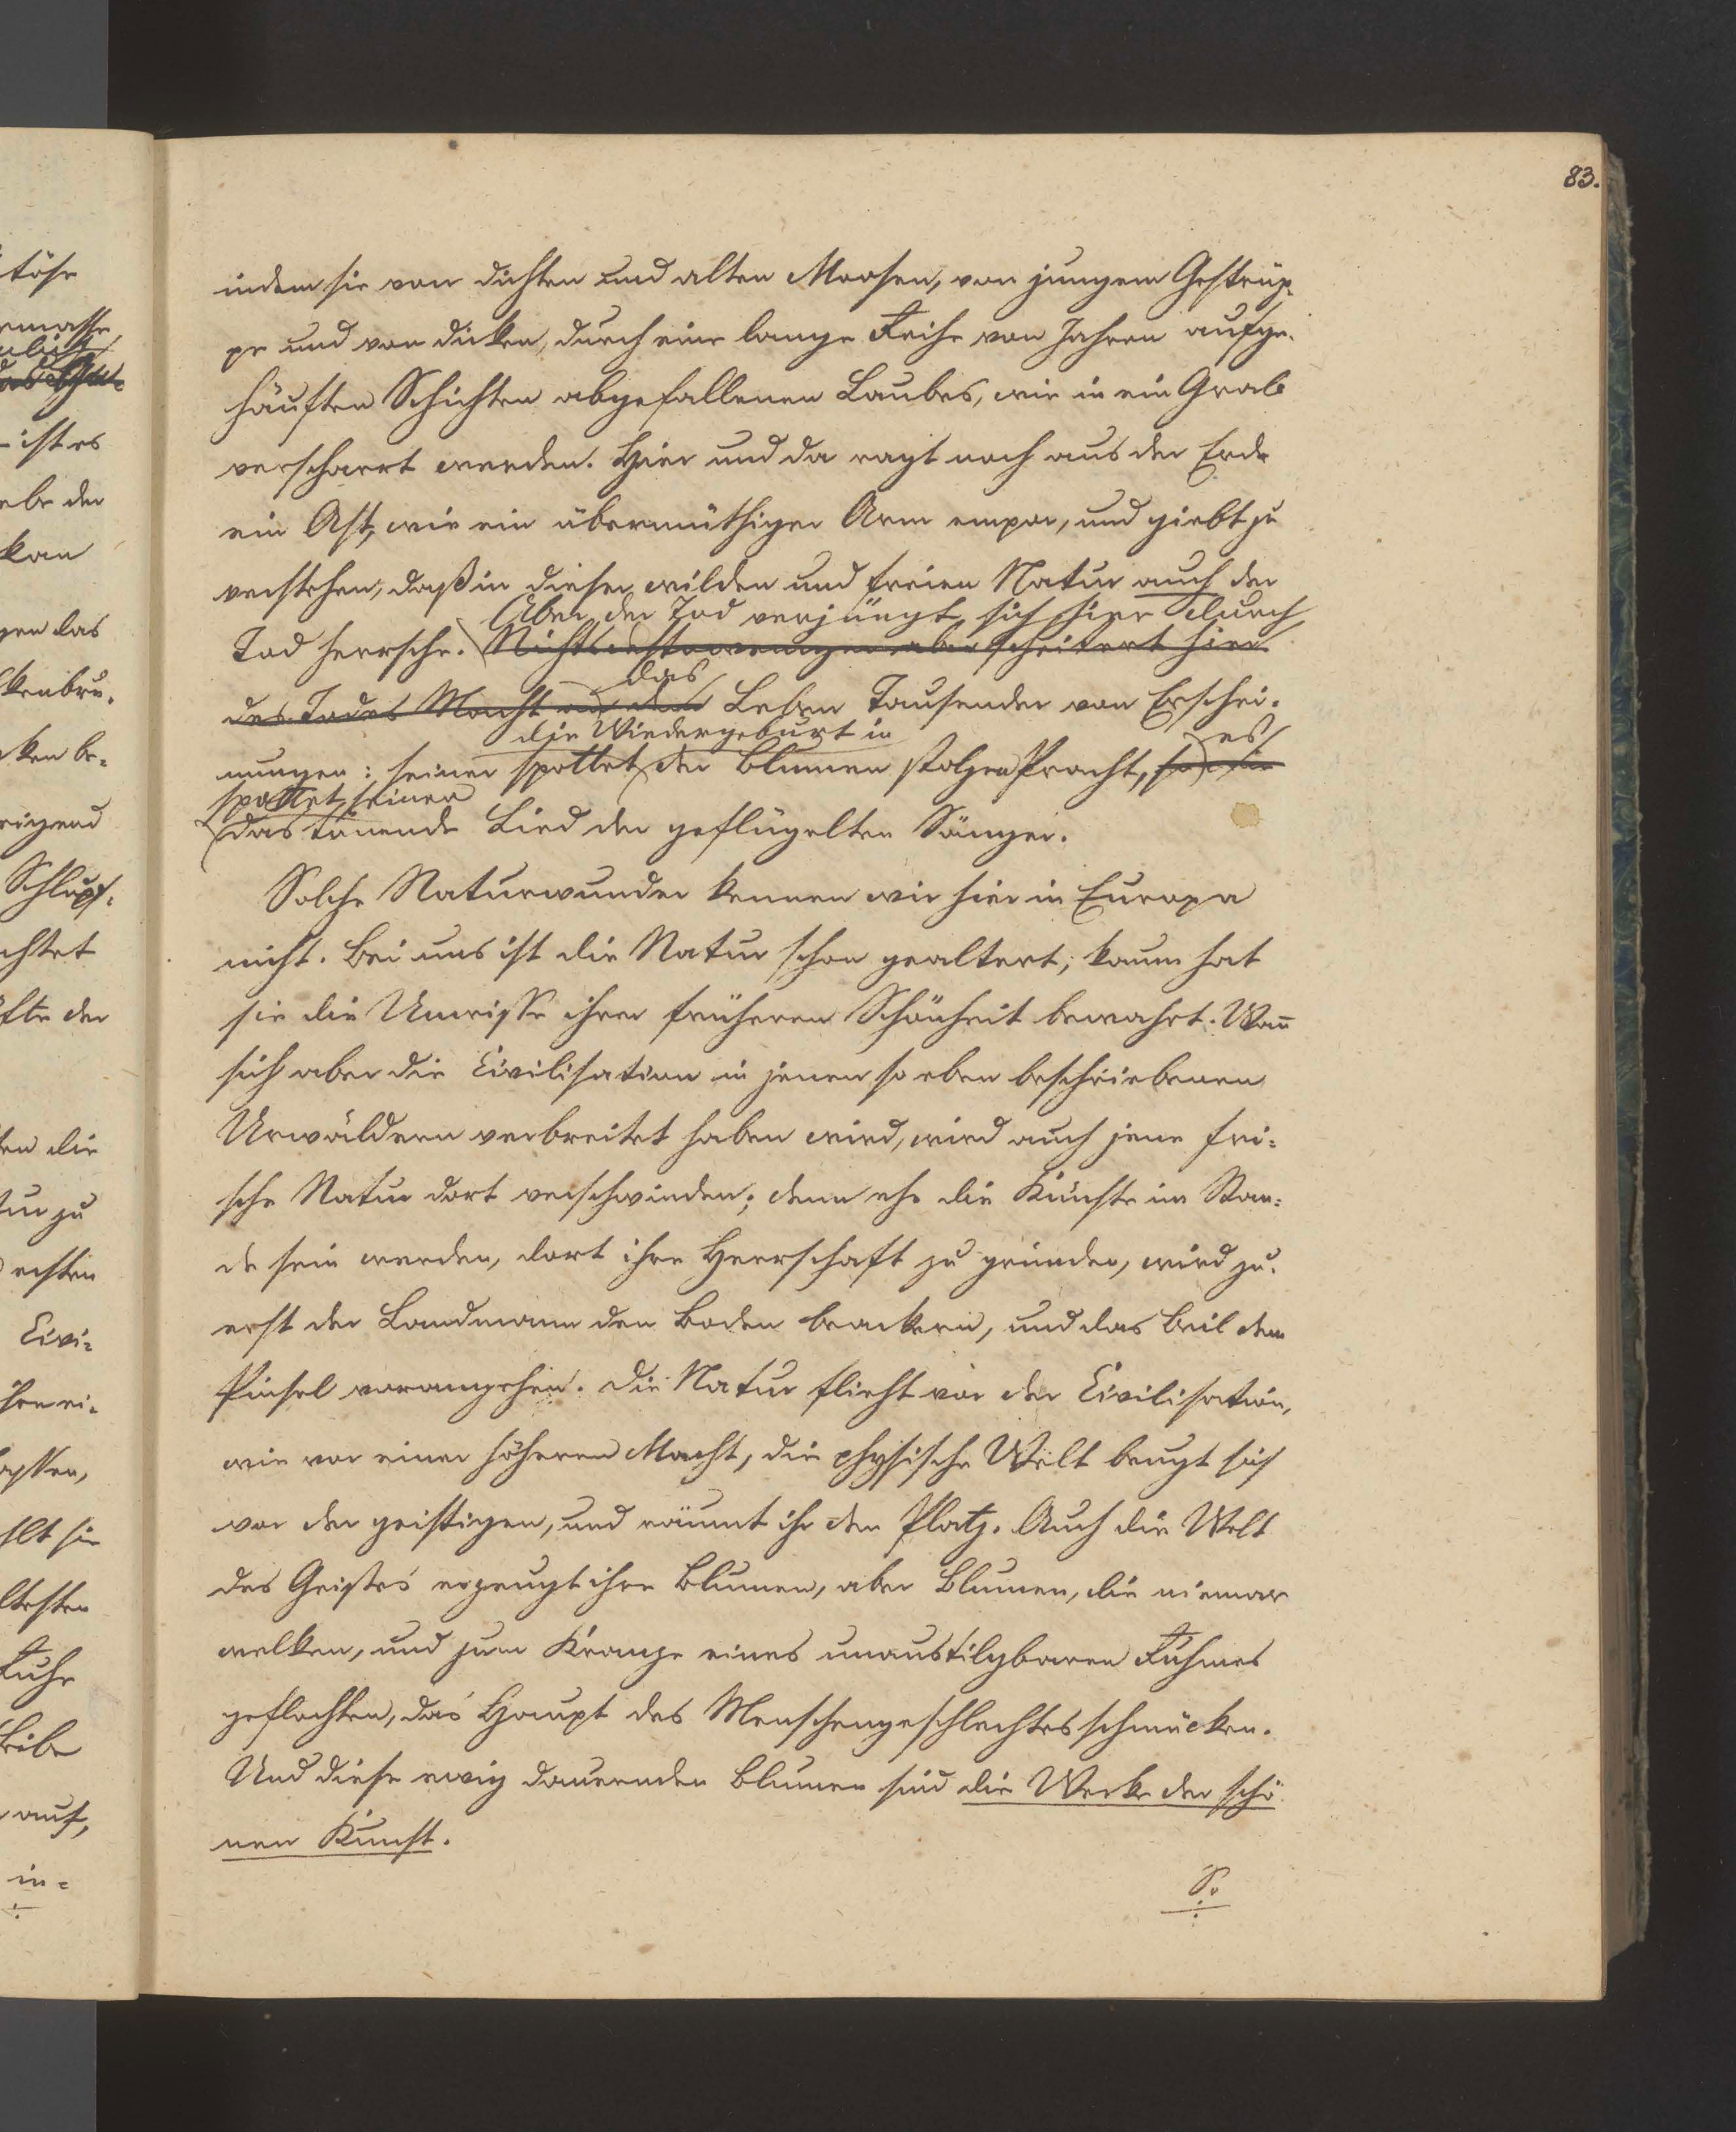 83.
indem sie von dichten und alten Moosen, von jungem Gestrüp-
pe und von dicken, durch eine lange Reihe von Jahren aufge-
häuften Schichten abgefallenen Laubes, wie in ein Grab
verscharrt werden. Hier und da ragt noch aus der Erde
ein Ast, wie ein übermüthiger Arm empor, und giebt zu
verstehen, daß in dieser wilden und freien Natur auch der
Aber der Tod verjüngt sich hier durch
Tod herrsche. Nichtsdestoweniger aber scheitert hier
das
des Todes Macht an dem Leben Tausender von Erschei-
die Wiedergeburt in es
nungen: seiner spottet der Blumen stolze Pracht,
spottet seiner
das tönende Lied der geflügelten Sänger.
Solche Naturwunder kennen wir hier in Europa
nicht. Bei uns ist die Natur schon gealtert; kaum hat
sie die Umrisse ihrer früheren Schönheit bewahrt. Wañ
sich aber die Civilisation in jenen so eben beschriebenen
Urwäldern verbreitet haben wird, wird auch jene fri-
sche Natur dort verschwinden; denn ehe die Künste im Stan-
de sein werden, dort ihre Herrschaft zu gründen, wird zu-
erst der Landmann den Boden beackern, und das Beil dem
Pinsel vorangehen. Die Natur flieht vor der Civilisation,
wie vor einer höheren Macht, die physische Welt beugt sich
vor der geistigen, und räumt ihr den Platz. Auch die Welt
des Geistes erzeugt ihre Blumen, aber Blumen, die niemar
welken, und zum Kranze eines unaustilgbaren Ruhmes
geflochten, das Haupt des Menschengeschlechtes schmücken.
Und diese ewig dauernden Blumen sind die Werke der schö-
nen Kunst.
S.